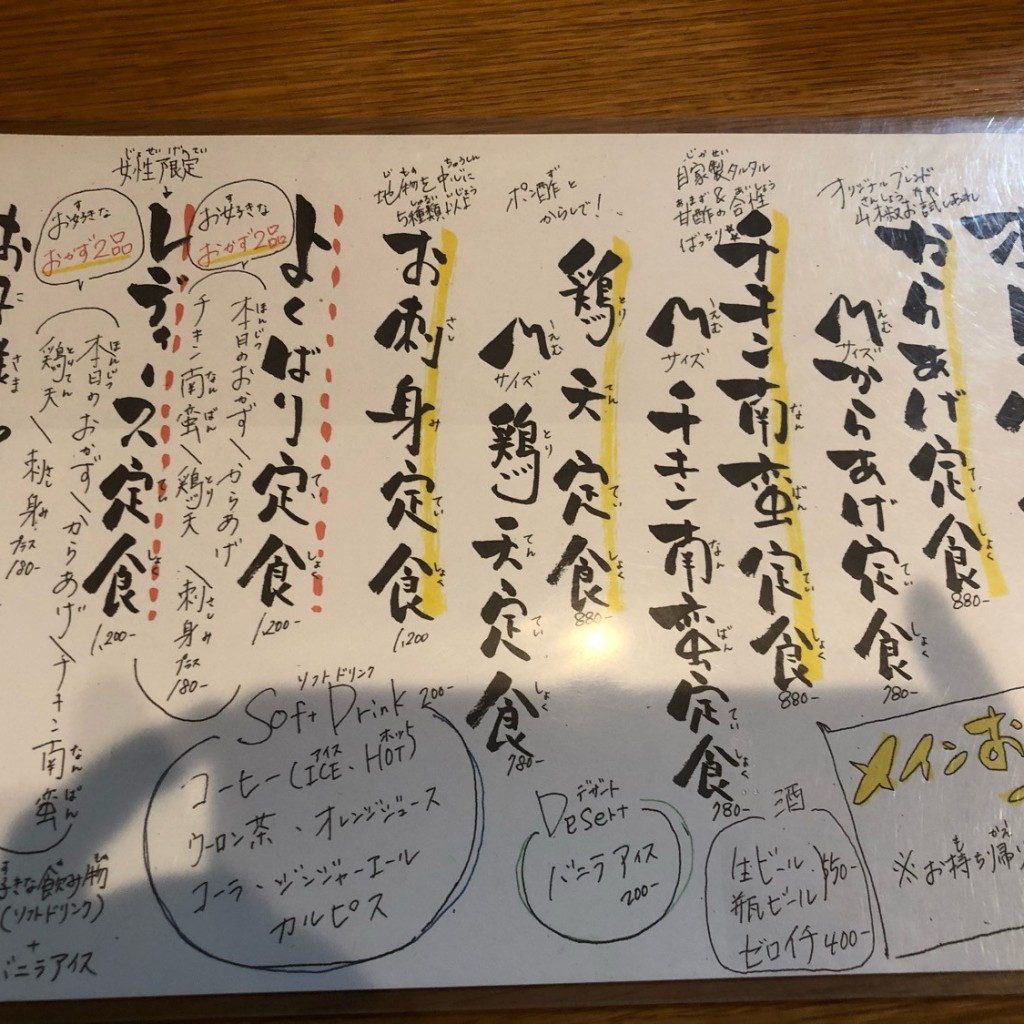 オリジナルブレンド
山椒お試しあれ
からあげ定食
880-
Mサイズからあげ定食
780-
自家製タルタル
甘酢&の合性
ばっちり
チキン南蛮定食
880-
Mサイズチキン南蛮定食
780-
ポン酢と
からしで!
鶏天定食
880-
Mサイズ鶏天定食
780-
地物を中心に
5種類以上
お刺身定食
1,200
よくばり定食
1,200-
お好きな
おかず2品
本日のおかず\からあげ
チキン南蛮\鶏天\刺身プラス180-
女性限定
レディース定食
1,200-
お好きな
おかず2品
本日のおかず\からあげ\チキン南蛮
鶏天\刺身プラス180-
好きな飲み物
(ソフトドリンク)
+
バニラアイス
ソフトドリンク
Soft Drink 200-
コーヒー(アイスICE・ホットHOT)
ウーロン茶、オレンジジュース
コーラ・ジンジャーエール
カルピス
デザート
Desert
バニラアイス
200-
酒
生ビール
瓶ビール 550-
ゼロイチ 400-
メインお
※お持ち帰り